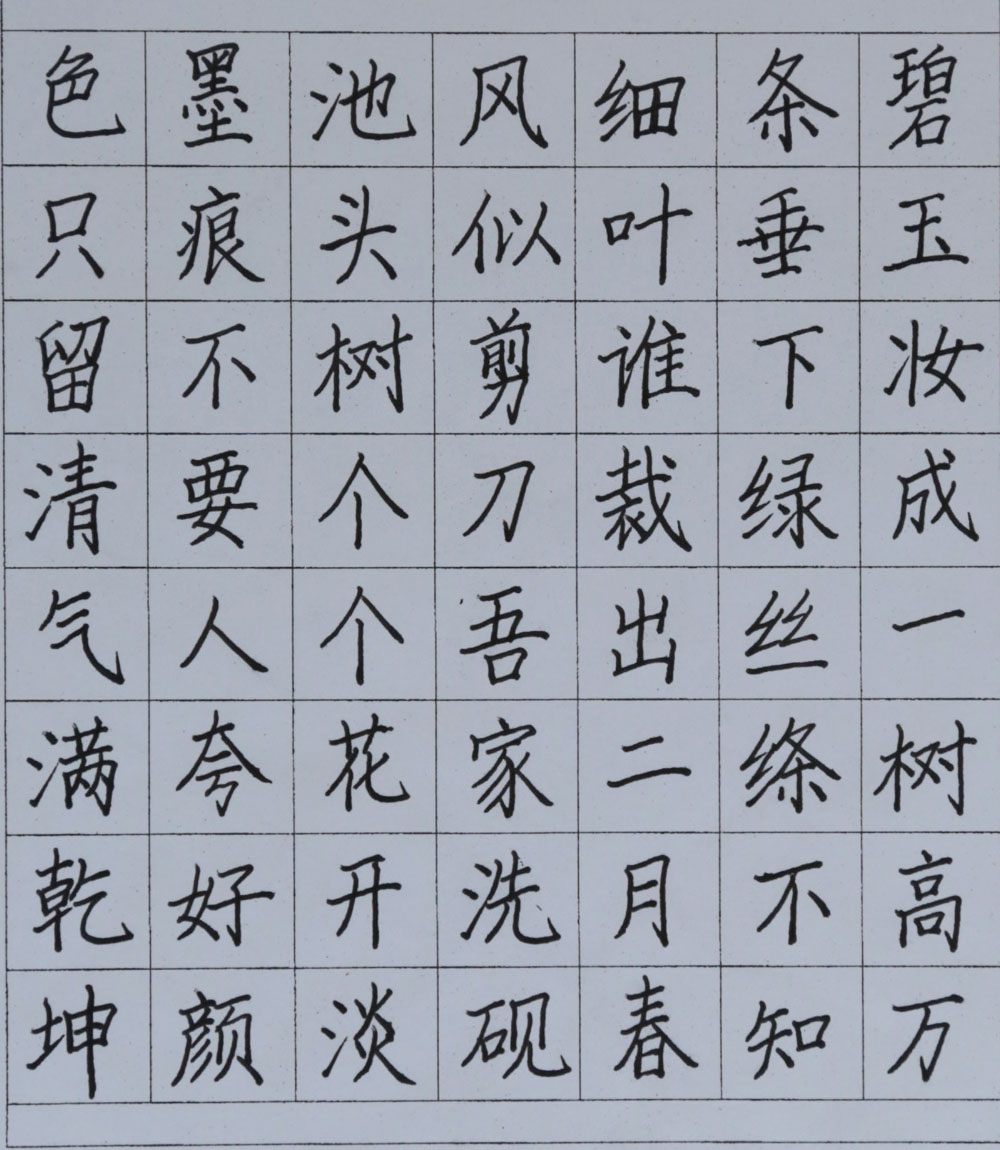 碧玉妆成一树高万
条垂下绿丝绦不知
细叶谁裁出二月春
风似剪刀吾家洗砚
池头树个个花开淡
墨痕不要人夸好颜
色只留清气满乾坤